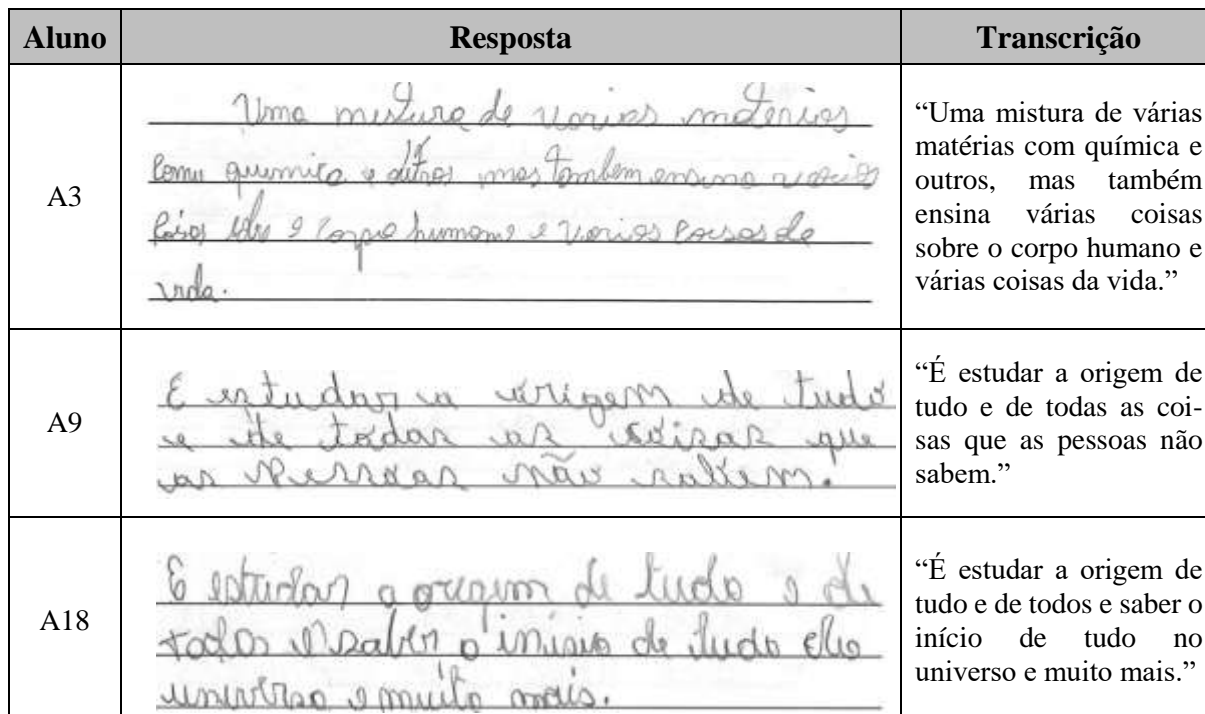 Aluno Resposta Transcrição
A3
Uma mistura de varias materias
como quimica e outros mas tambem ensina varias
coisas sobre o corpo humano e varias coisas da
vida.
“Uma mistura de várias
matérias com química e
outros, mas também
ensina várias coisas
sobre o corpo humano e
várias coisas da vida.”
A9
É estudar a origem de tudo
e de todas as coisas que
as pessoas não sabem.
“É estudar a origem de
tudo e de todas as coi-
sas que as pessoas não
sabem.”
A18
É estudar a origem de tudo e de
todos e saber o inisio de tudo
universo e muito mais.
“É estudar a origem de
tudo e de todos e saber o
início de tudo no
universo e muito mais.”